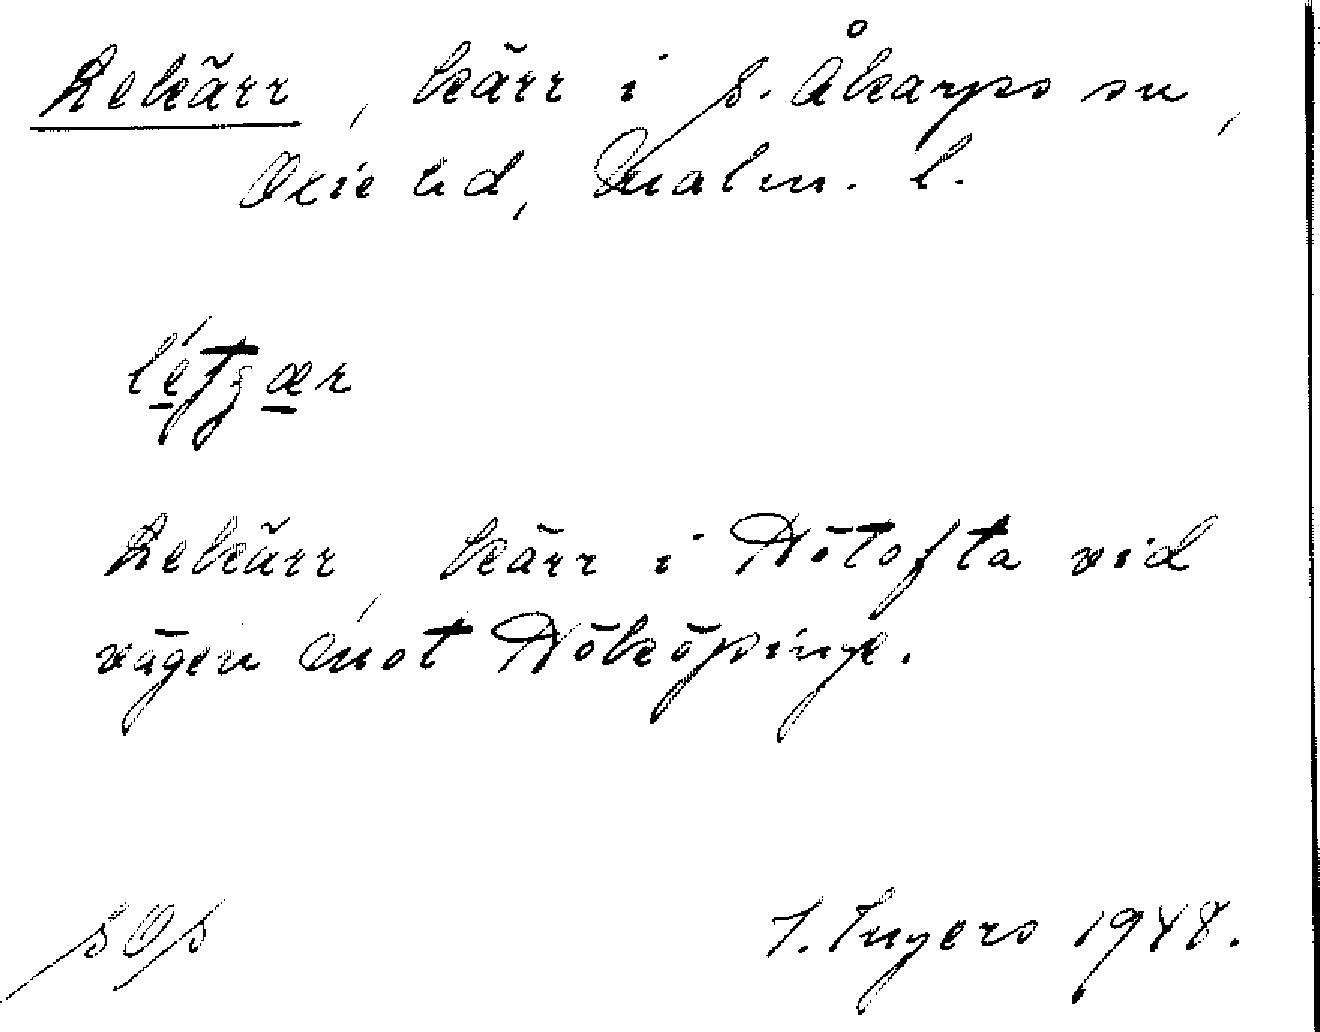 Lekärr, kärr i S. Åkarps sn,
Oxie hd, Malm. l.
Lekärr, kärr i Nötofta vid
vägen mot Nököpinge.
SOS
I. Ingers 1948.